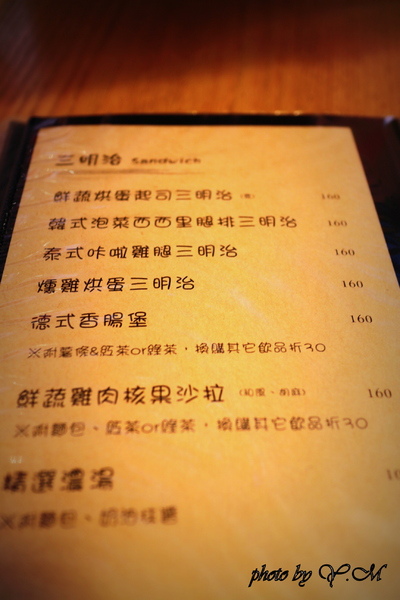 三明治 Sandwich
鮮蔬烘蛋起司三明治 (素) 160
韓式泡菜西西里腿排三明治 160
泰式咔啦雞腿三明治 160
燻雞烘蛋三明治 160
德式香腸堡 160
※附薯條&紅茶or綠茶，換購其它飲品折30
鮮蔬雞肉核果沙拉 (和風、胡麻) 160
※附麵包、紅茶or綠茶，換購其它飲品折30
精選濃湯 10
※附麵包、奶油
photo by Y.M